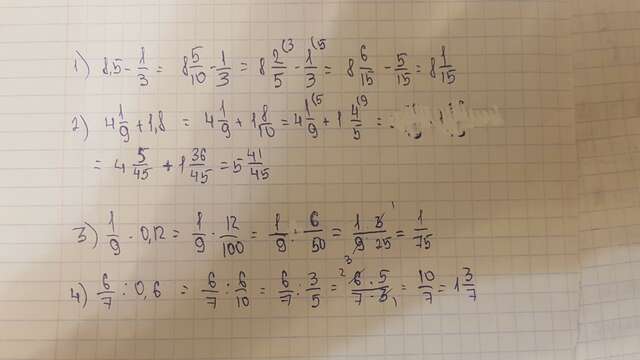 1) 8,5 - 1/3 = 8 5/10 - 1/3 = 8 2/5 (3 - 1/3 (5 = 8 6/15 - 5/15 = 8 1/15
2) 4 1/9 + 1,8 = 4 1/9 + 1 8/10 = 4 1/9 (5 + 1 4/5 (9 =
= 4 5/45 + 1 36/45 = 5 41/45
3) 1/9 · 0,12 = 1/9 · 12/100 = 1/9 · 6/50 = 1 · 3 1/9 3 · 25 = 1/75
4) 6/7 : 0,6 = 6/7 : 6/10 = 6/7 : 3/5 = 2 6 · 5/7 · 3 1 = 10/7 = 1 3/7